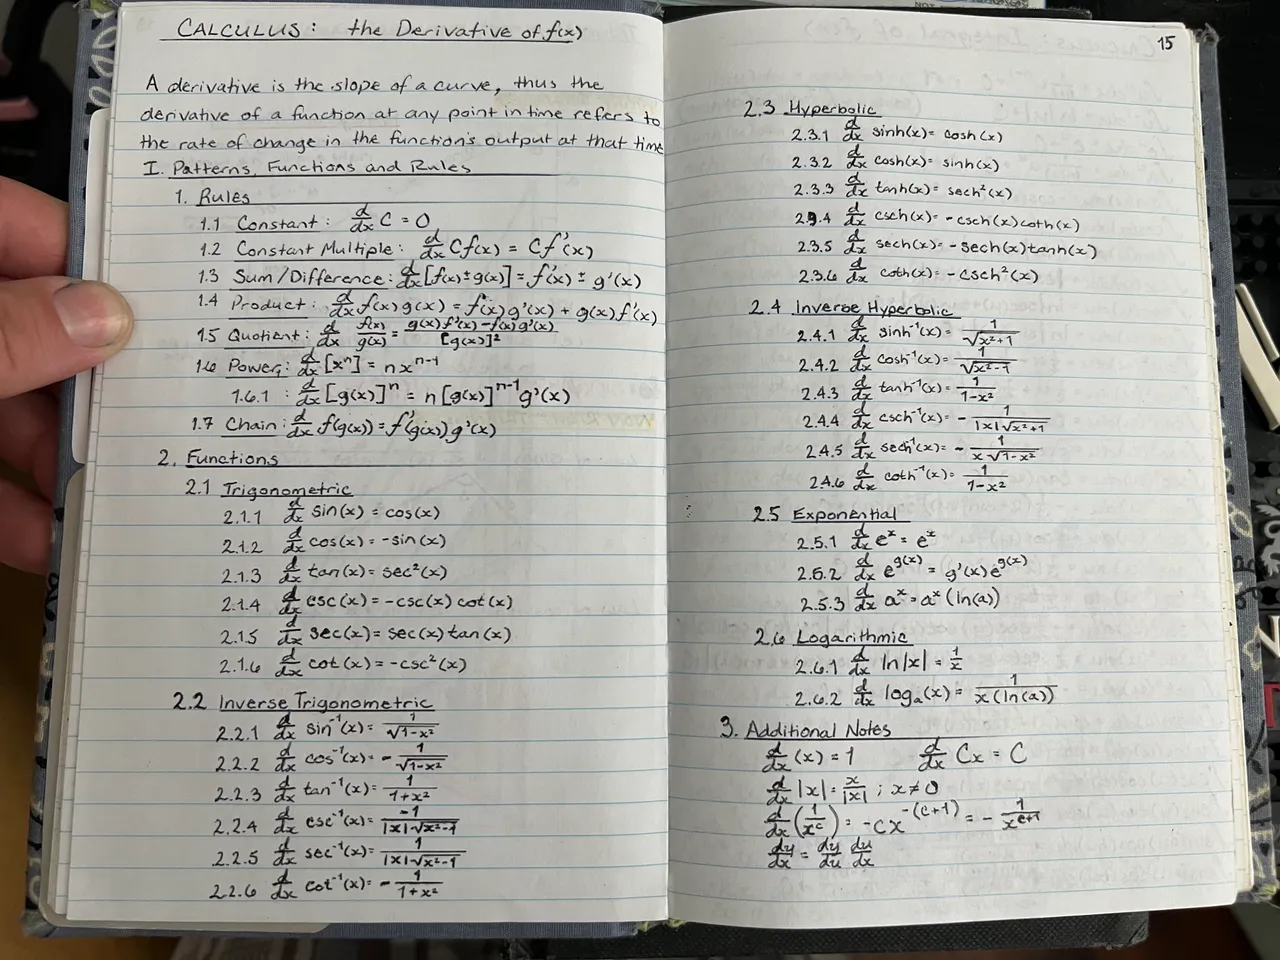 CALCULUS: the Derivative of f(x)
A derivative is the slope of a curve, thus the
derivative of a function at any point in time refers to
the rate of change in the function's output at that time
I. Patterns, Functions and Rules
1. Rules
1.1 Constant: d/dx C = 0
1.2 Constant Multiple: d/dx Cf(x) = Cf'(x)
1.3 Sum/Difference: d/dx [f(x) ± g(x)] = f'(x) ± g'(x)
1.4 Product: d/dx f(x)g(x) = f'(x)g'(x) + g(x)f'(x)
1.5 Quotient: d/dx f(x)/g(x) = g(x)f'(x) - f(x)g'(x)/[g(x)]²
1.6 Power: d/dx [xⁿ] = nxⁿ⁻¹
1.6.1 : d/dx [g(x)]ⁿ = n[g(x)]ⁿ⁻¹g'(x)
1.7 Chain: d/dx f(g(x)) = f'(g(x))g'(x)
2. Functions
2.1 Trigonometric
2.1.1 d/dx sin(x) = cos(x)
2.1.2 d/dx cos(x) = -sin(x)
2.1.3 d/dx tan(x) = sec²(x)
2.1.4 d/dx csc(x) = -csc(x)cot(x)
2.1.5 d/dx sec(x) = sec(x)tan(x)
2.1.6 d/dx cot(x) = -csc²(x)
2.2 Inverse Trigonometric
2.2.1 d/dx sin⁻¹(x) = 1/√(1-x²)
2.2.2 d/dx cos⁻¹(x) = -1/√(1-x²)
2.2.3 d/dx tan⁻¹(x) = 1/(1+x²)
2.2.4 d/dx csc⁻¹(x) = -1/(|x|√(x²-1))
2.2.5 d/dx sec⁻¹(x) = 1/(|x|√(x²-1))
2.2.6 d/dx cot⁻¹(x) = -1/(1+x²)
15
2.3 Hyperbolic
2.3.1 d/dx sinh(x) = cosh(x)
2.3.2 d/dx cosh(x) = sinh(x)
2.3.3 d/dx tanh(x) = sech²(x)
2.3.4 d/dx csch(x) = -csch(x)coth(x)
2.3.5 d/dx sech(x) = -sech(x)tanh(x)
2.3.6 d/dx coth(x) = -csch²(x)
2.4 Inverse Hyperbolic
2.4.1 d/dx sinh⁻¹(x) = 1/√(x²+1)
2.4.2 d/dx cosh⁻¹(x) = 1/√(x²-1)
2.4.3 d/dx tanh⁻¹(x) = 1/(1-x²)
2.4.4 d/dx csch⁻¹(x) = -1/(|x|√(x²+1))
2.4.5 d/dx sech⁻¹(x) = -1/(x√(1-x²))
2.4.6 d/dx coth⁻¹(x) = 1/(1-x²)
2.5 Exponential
2.5.1 d/dx eˣ = eˣ
2.5.2 d/dx e^g(x) = g'(x)e^g(x)
2.5.3 d/dx aˣ = aˣ(ln(a))
2.6 Logarithmic
2.6.1 d/dx ln|x| = 1/x
2.6.2 d/dx logₐ(x) = 1/(x(ln(a)))
3. Additional Notes
d/dx (x) = 1 d/dx Cx = C
d/dx |x| = x/|x| ; x ≠ 0
d/dx (1/x^c) = -cx^-(c+1) = -1/x^(c+1)
dy/dx = dy/du du/dx